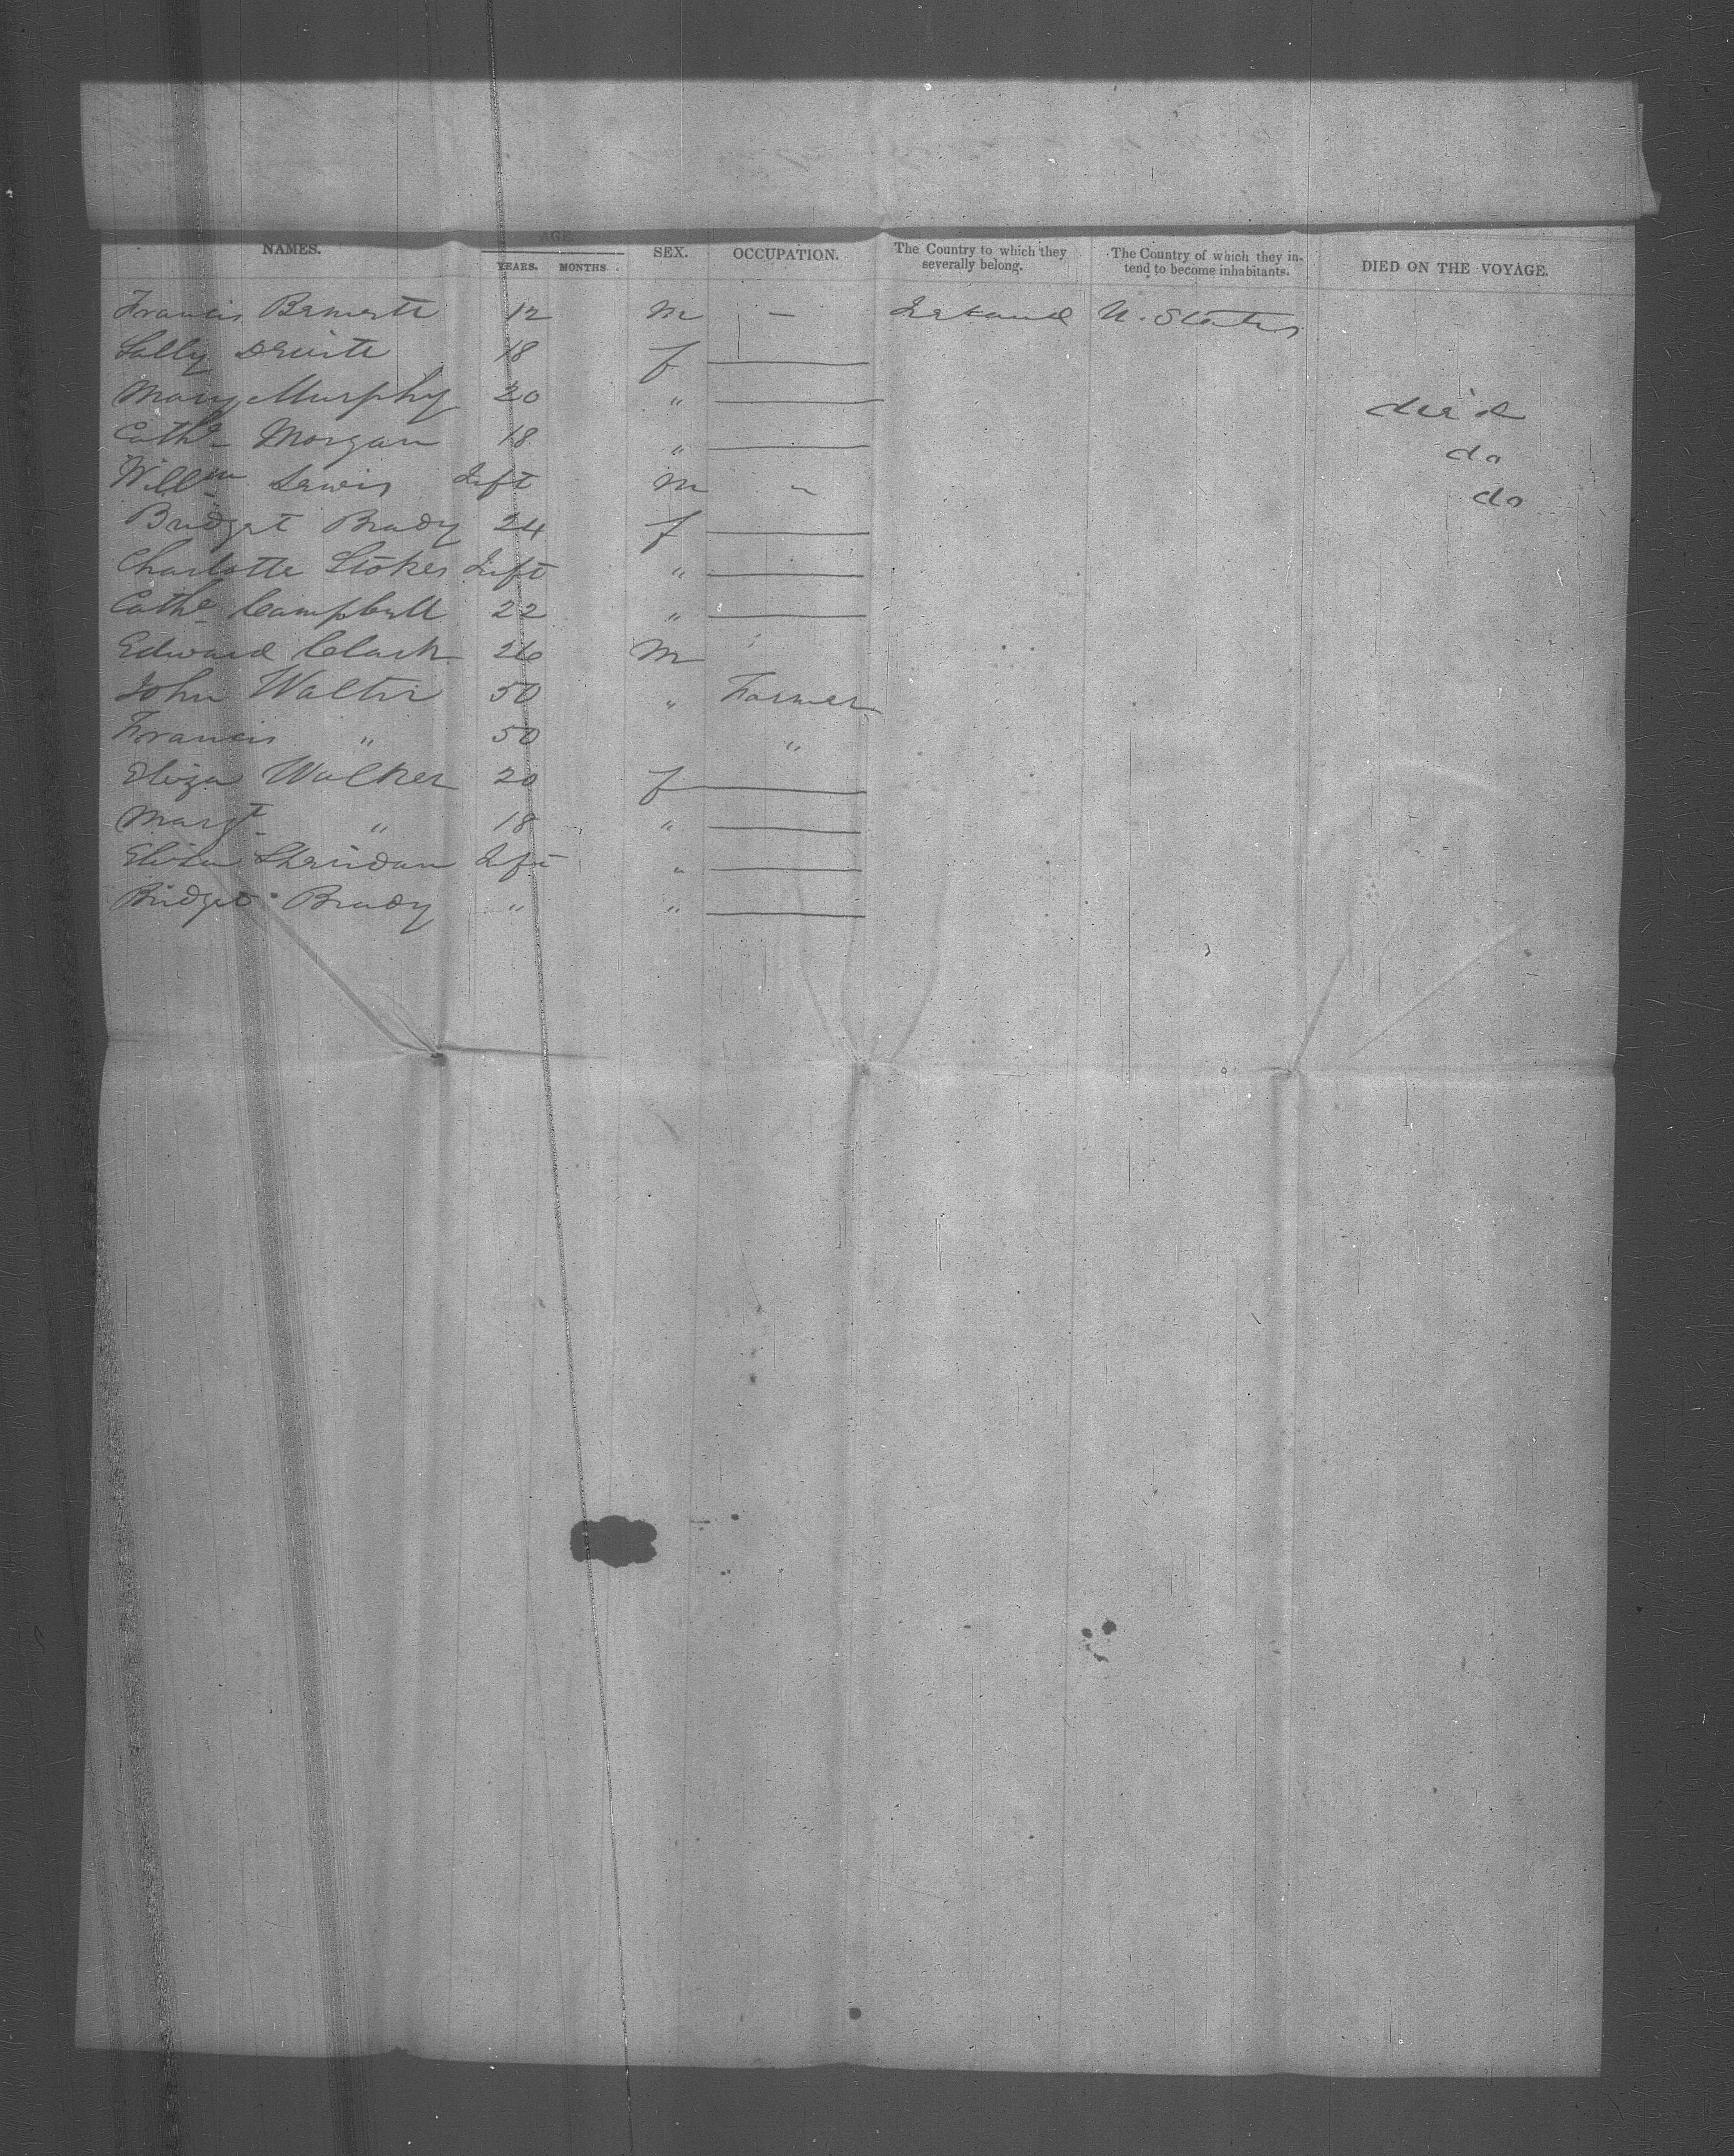 NAMES. AGE. SEX. OCCUPATION. The Country to which they severally belong. The Country of which they in- tend to become inhabitants. DIED ON THE VOYAGE.
YEARS. MONTHS.
Francis 12 m — Ireland U. States
Sally 18 f
Mary Murphy 20 " died
Cathe Morgan 18 " do
Willm Lewis Inft m " do
Bridget Brady 24 f
Charlotte Stokes Inft "
Cathe Campbell 22 "
Edward Clark 26 M
John Walter 50 " Farmer
Francis " 50 "
Eliza Walker 20 f
Margt " 18 "
Eliza Sheridan Inft "
Bridget Brady " "